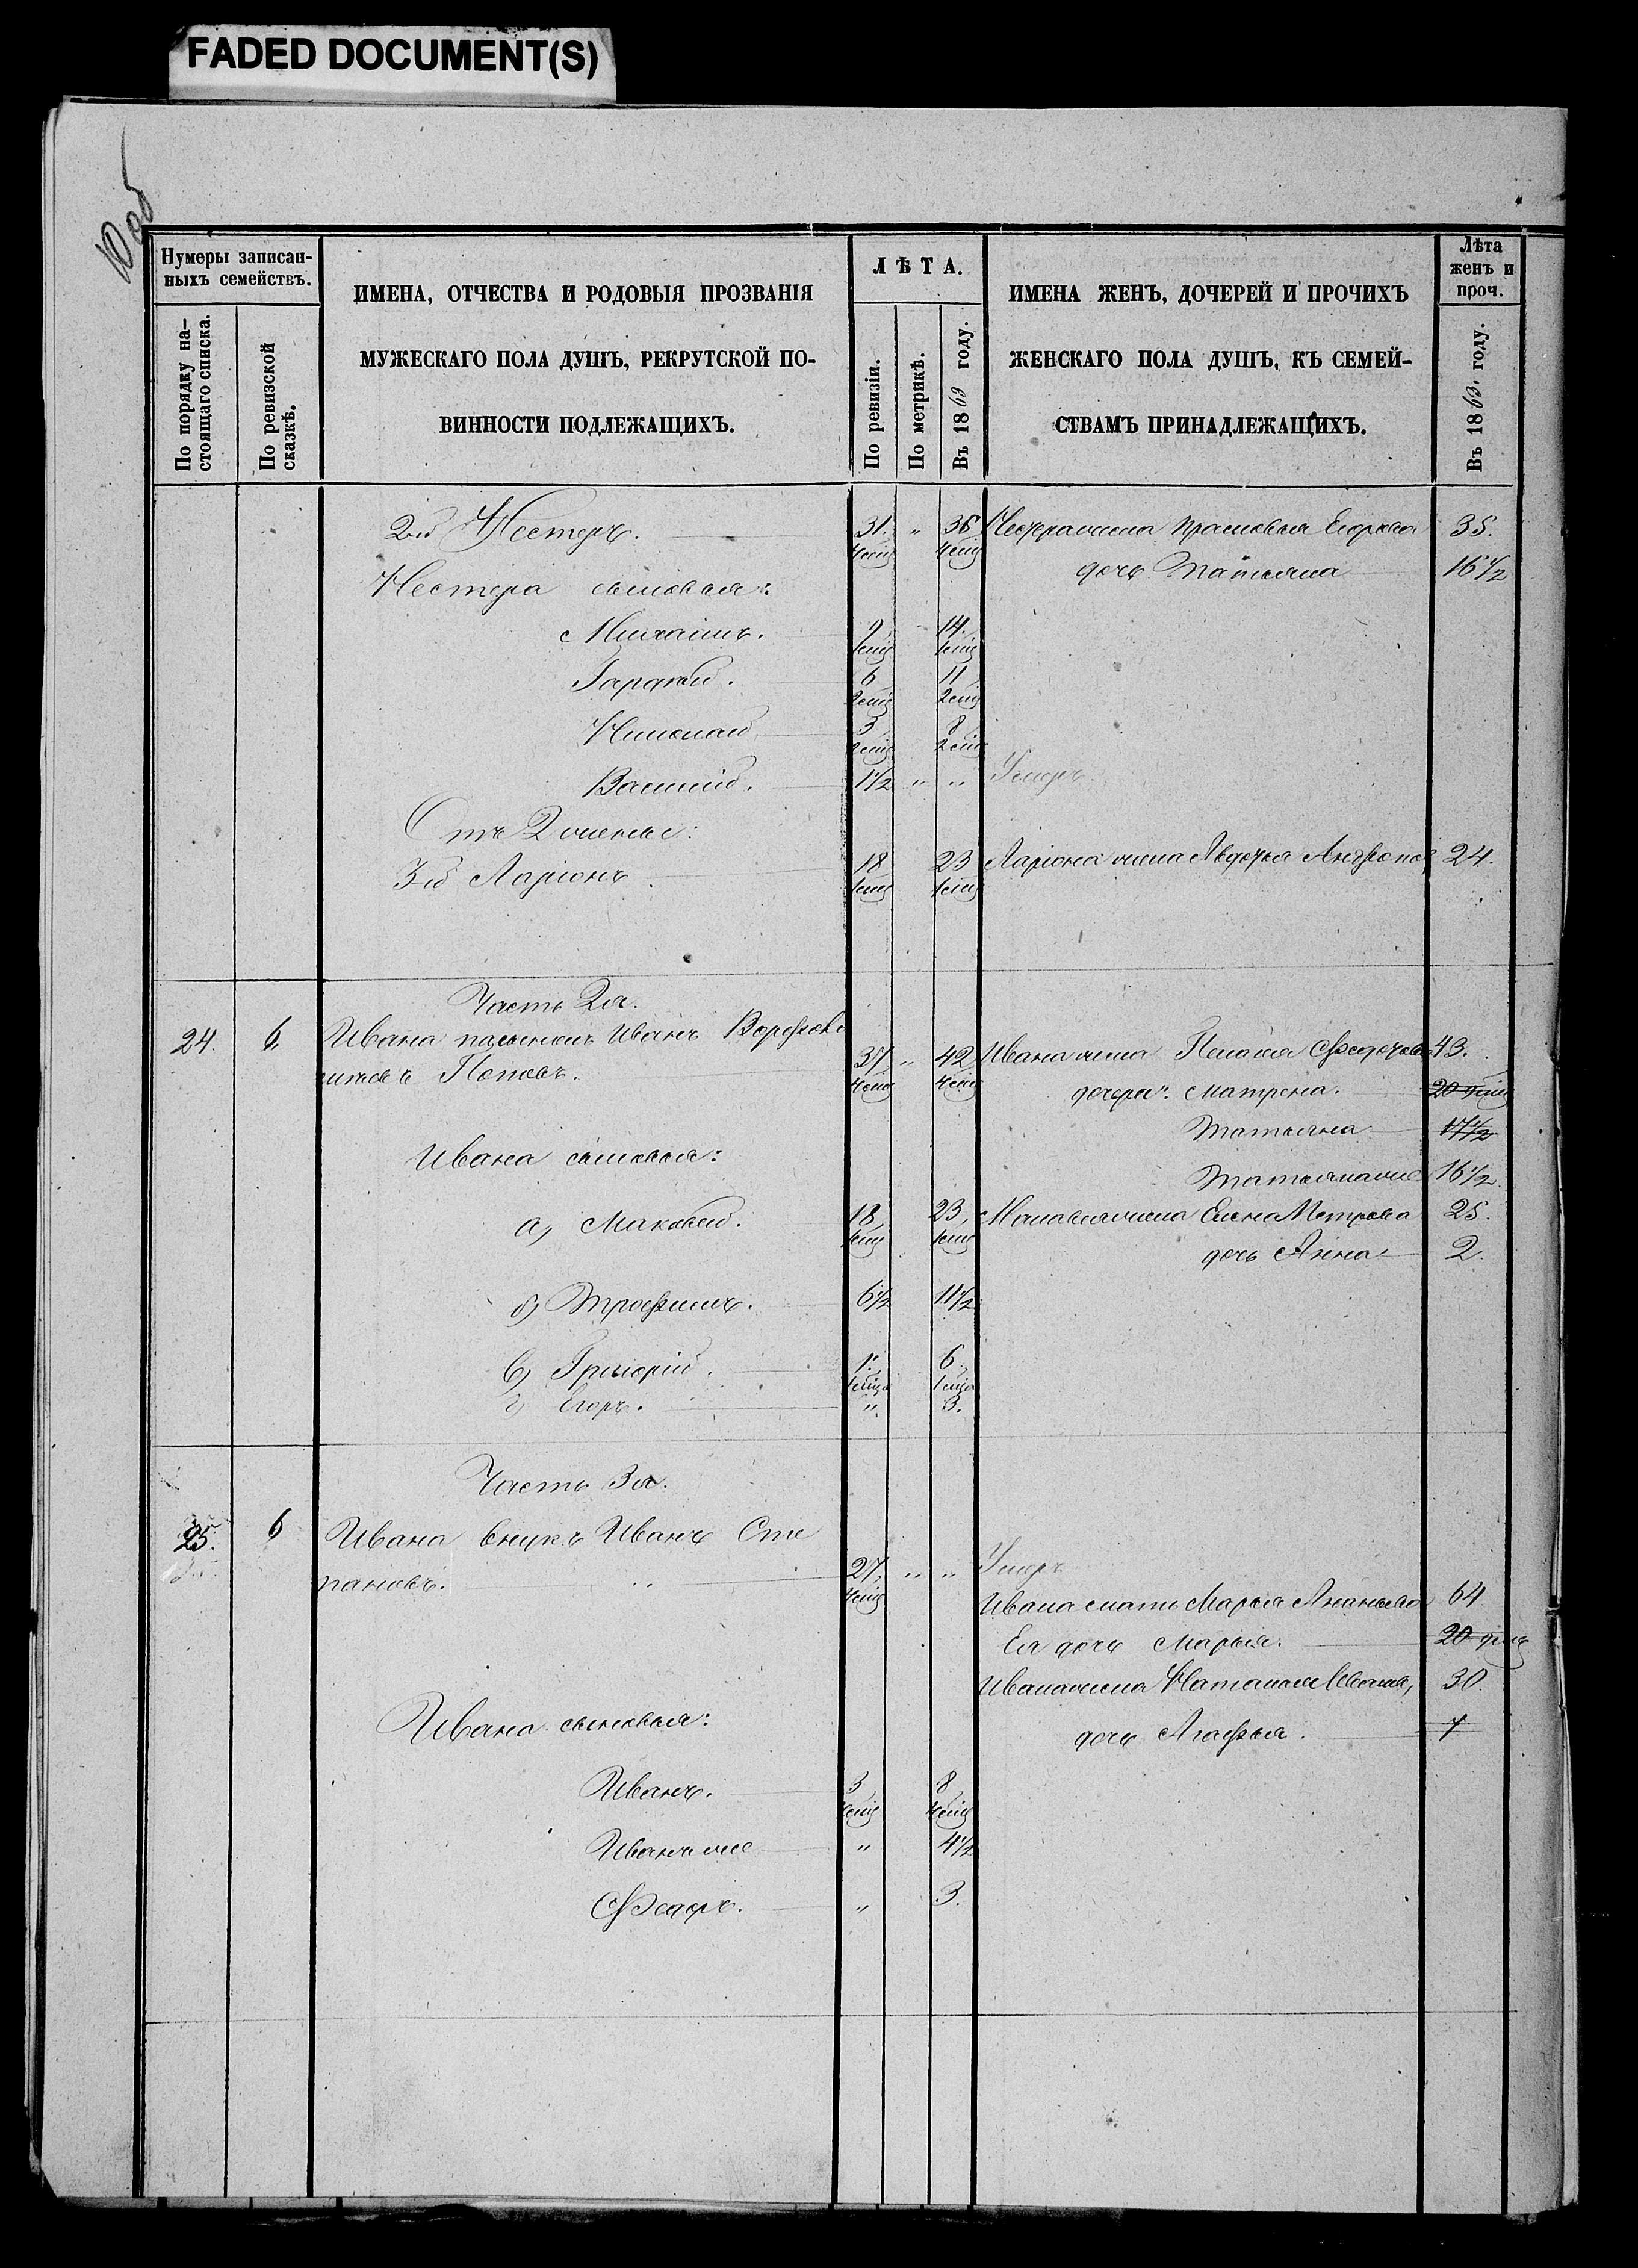 FADED DOCUMENT(S)
10 об
Нумеры записан-
ныхъ семействъ.
По порядку на-
стоящаго списка.
По ревизской
сказкѣ.
ИМЕНА, ОТЧЕСТВА И РОДОВЫЯ ПРОЗВАНІЯ
МУЖЕСКАГО ПОЛА ДУШЪ, РЕКРУТСКОЙ ПО-
ВИННОСТИ ПОДЛЕЖАЩИХЪ.
ЛѢТА.
По ревизіи.
По метрикѣ.
Въ 1863 году.
ИМЕНА ЖЕНЪ, ДОЧЕРЕЙ И ПРОЧИХЪ
ЖЕНСКАГО ПОЛА ДУШЪ, КЪ СЕМЕЙ-
СТВАМЪ ПРИНАДЛЕЖАЩИХЪ.
Лѣта
женъ и
проч.
Въ 1863 году.
2й Нестеръ. 31. " 36 жена Прасковья 35.
дочь Татьяна 16 1/2
Нестера сыновья:
Михаилъ. 9 14
Гордѣй. 6 11
Николай 3 8
Василій. 1 1/2 " " Умеръ
Отъ 2 жены:
3й Ларіонъ 18 23 Ларіона жена Авдотья 24.
Часть 2я.
24. 6, Ивана Иванъ
Поповъ. 37 " 42 Ивана жена Пелагея 43.
дочери: Матрена. 20
Татьяна 17 1/2
Ивана сыновья:
Татьяна же 16 1/2.
а, Маковей. 18 23, жена Елена Петрова 25.
дочь Анна 2.
б, Трофимъ. 6 1/2 11 1/2
в, Григорій. 1. 6
г, Егоръ. " 3.
Часть 3я.
25. 6 Ивана внукъ Иванъ Сте
пановъ. 27, " " Умеръ
Ивана мать Марья Ананьева 64
Ея дочь Марья. 20
Ивана жена Наталья 30.
Ивана сыновья:
дочь Агафья. 7
Иванъ. 3 8
Иванъ же " 4 1/2
Федоръ. " 3.